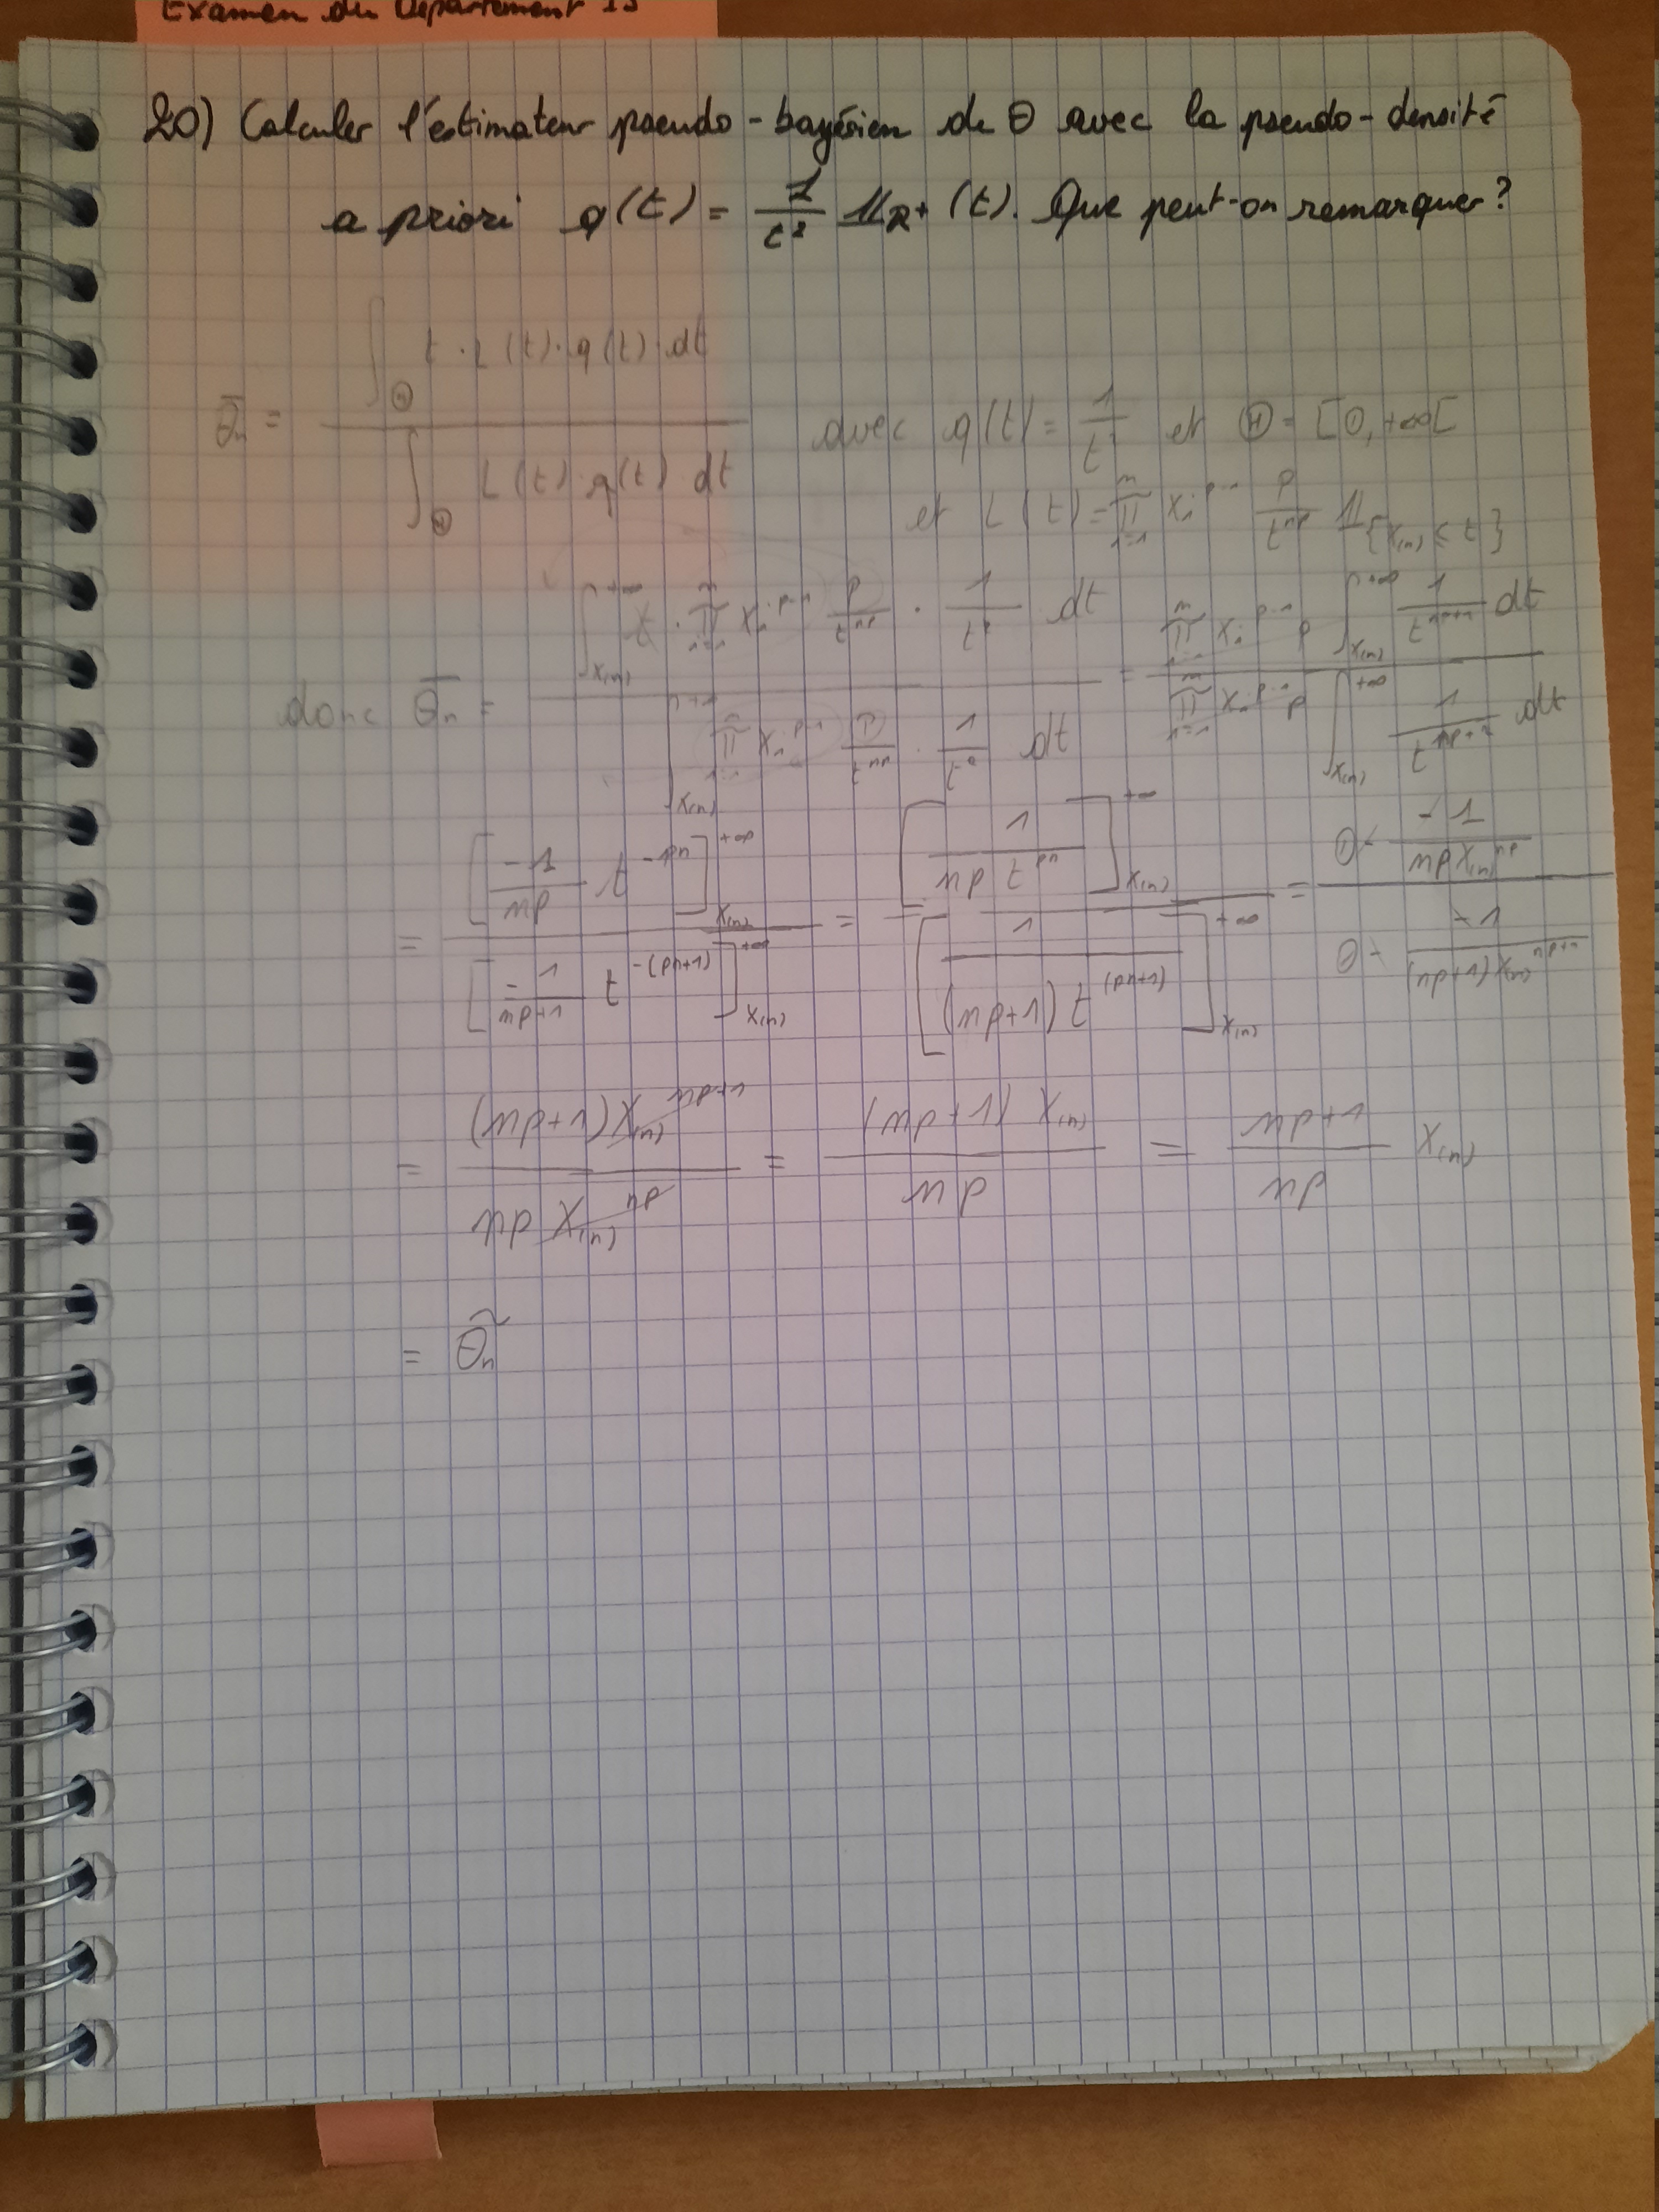 Examen du Département IS
20) Calculer l'estimateur pseudo-bayésien de θ avec la pseudo-densité
a priori q(t) = 1/t² 𝟙_R+ (t). Que peut-on remarquer ?
θ̄n = ∫_Θ t · L(t) · q(t) · dt / ∫_Θ L(t) · q(t) dt avec q(t) = 1/t² et Θ = [0, +∞[
et L(t) = ∏_{i=1}^n Xi^{p-1} p/t^{np} 𝟙_{X(n) ≤ t}
donc θ̄n = ∫_{X(n)}^{+∞} t · ∏_{i=1}^n Xi^{p-1} p/t^{np} · 1/t² dt / ∫_{X(n)}^{+∞} ∏_{i=1}^n Xi^{p-1} p/t^{np} · 1/t² dt = ∏_{i=1}^n Xi^{p-1} p ∫_{X(n)}^{+∞} 1/t^{np+1} dt / ∏_{i=1}^n Xi^{p-1} p ∫_{X(n)}^{+∞} 1/t^{np+2} dt
= [-1/np t^{-pn}]_{X(n)}^{+∞} / [-1/(np+1) t^{-(pn+1)}]_{X(n)}^{+∞} = [1/(np t^{pn})]_{X(n)}^{+∞} / [1/((np+1) t^{(pn+1)})]_{X(n)}^{+∞} = 0 - -1/(np X(n)^{np}) / 0 - -1/((np+1) X(n)^{np+1})
= (np+1) X(n)^{np+1} / np X(n)^{np} = (np+1) X(n) / np = (np+1)/np X(n)
= θ̃n